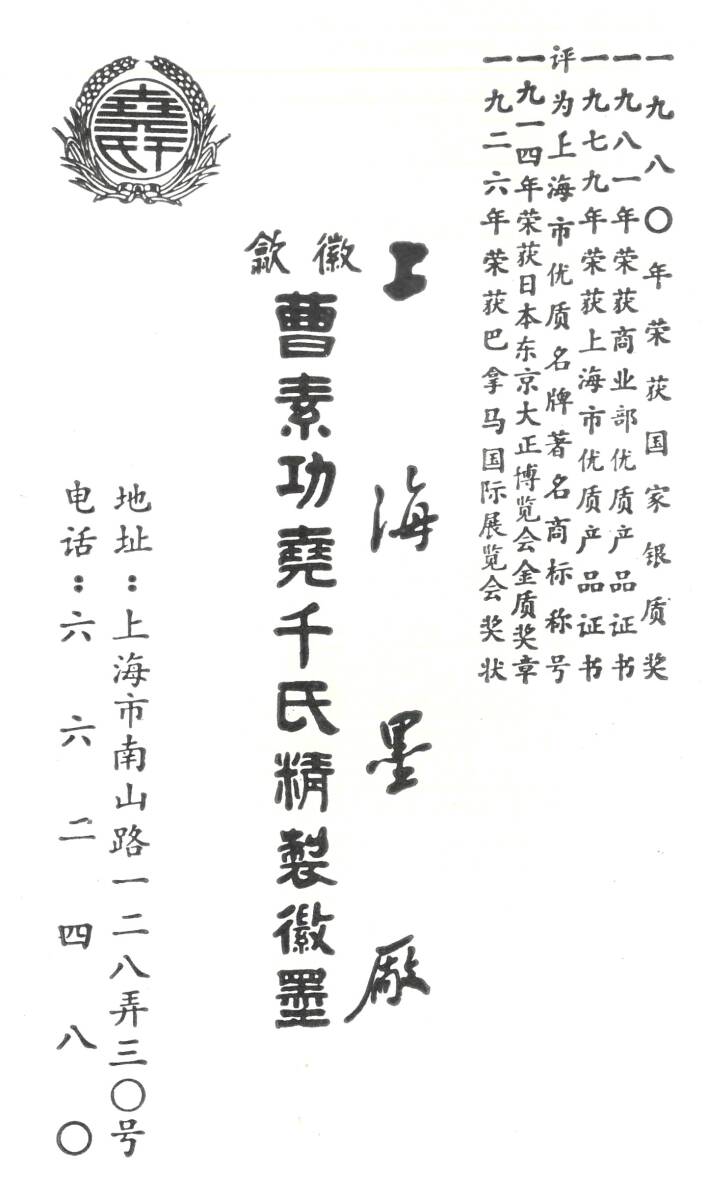 一九八〇年荣获国家银质奖
一九八一年荣获商业部优质产品证书
一九七九年荣获上海市优质产品证书
评为上海市优质名牌著名商标称号
一九一四年荣获日本东京大正博览会金质奖章
一九二六年荣获巴拿马国际展览会奖状
上海墨厂
徽歙
曹素功堯千氏精製徽墨
地址：上海市南山路一二八弄三〇号
电话：六六二四八〇
堯千氏